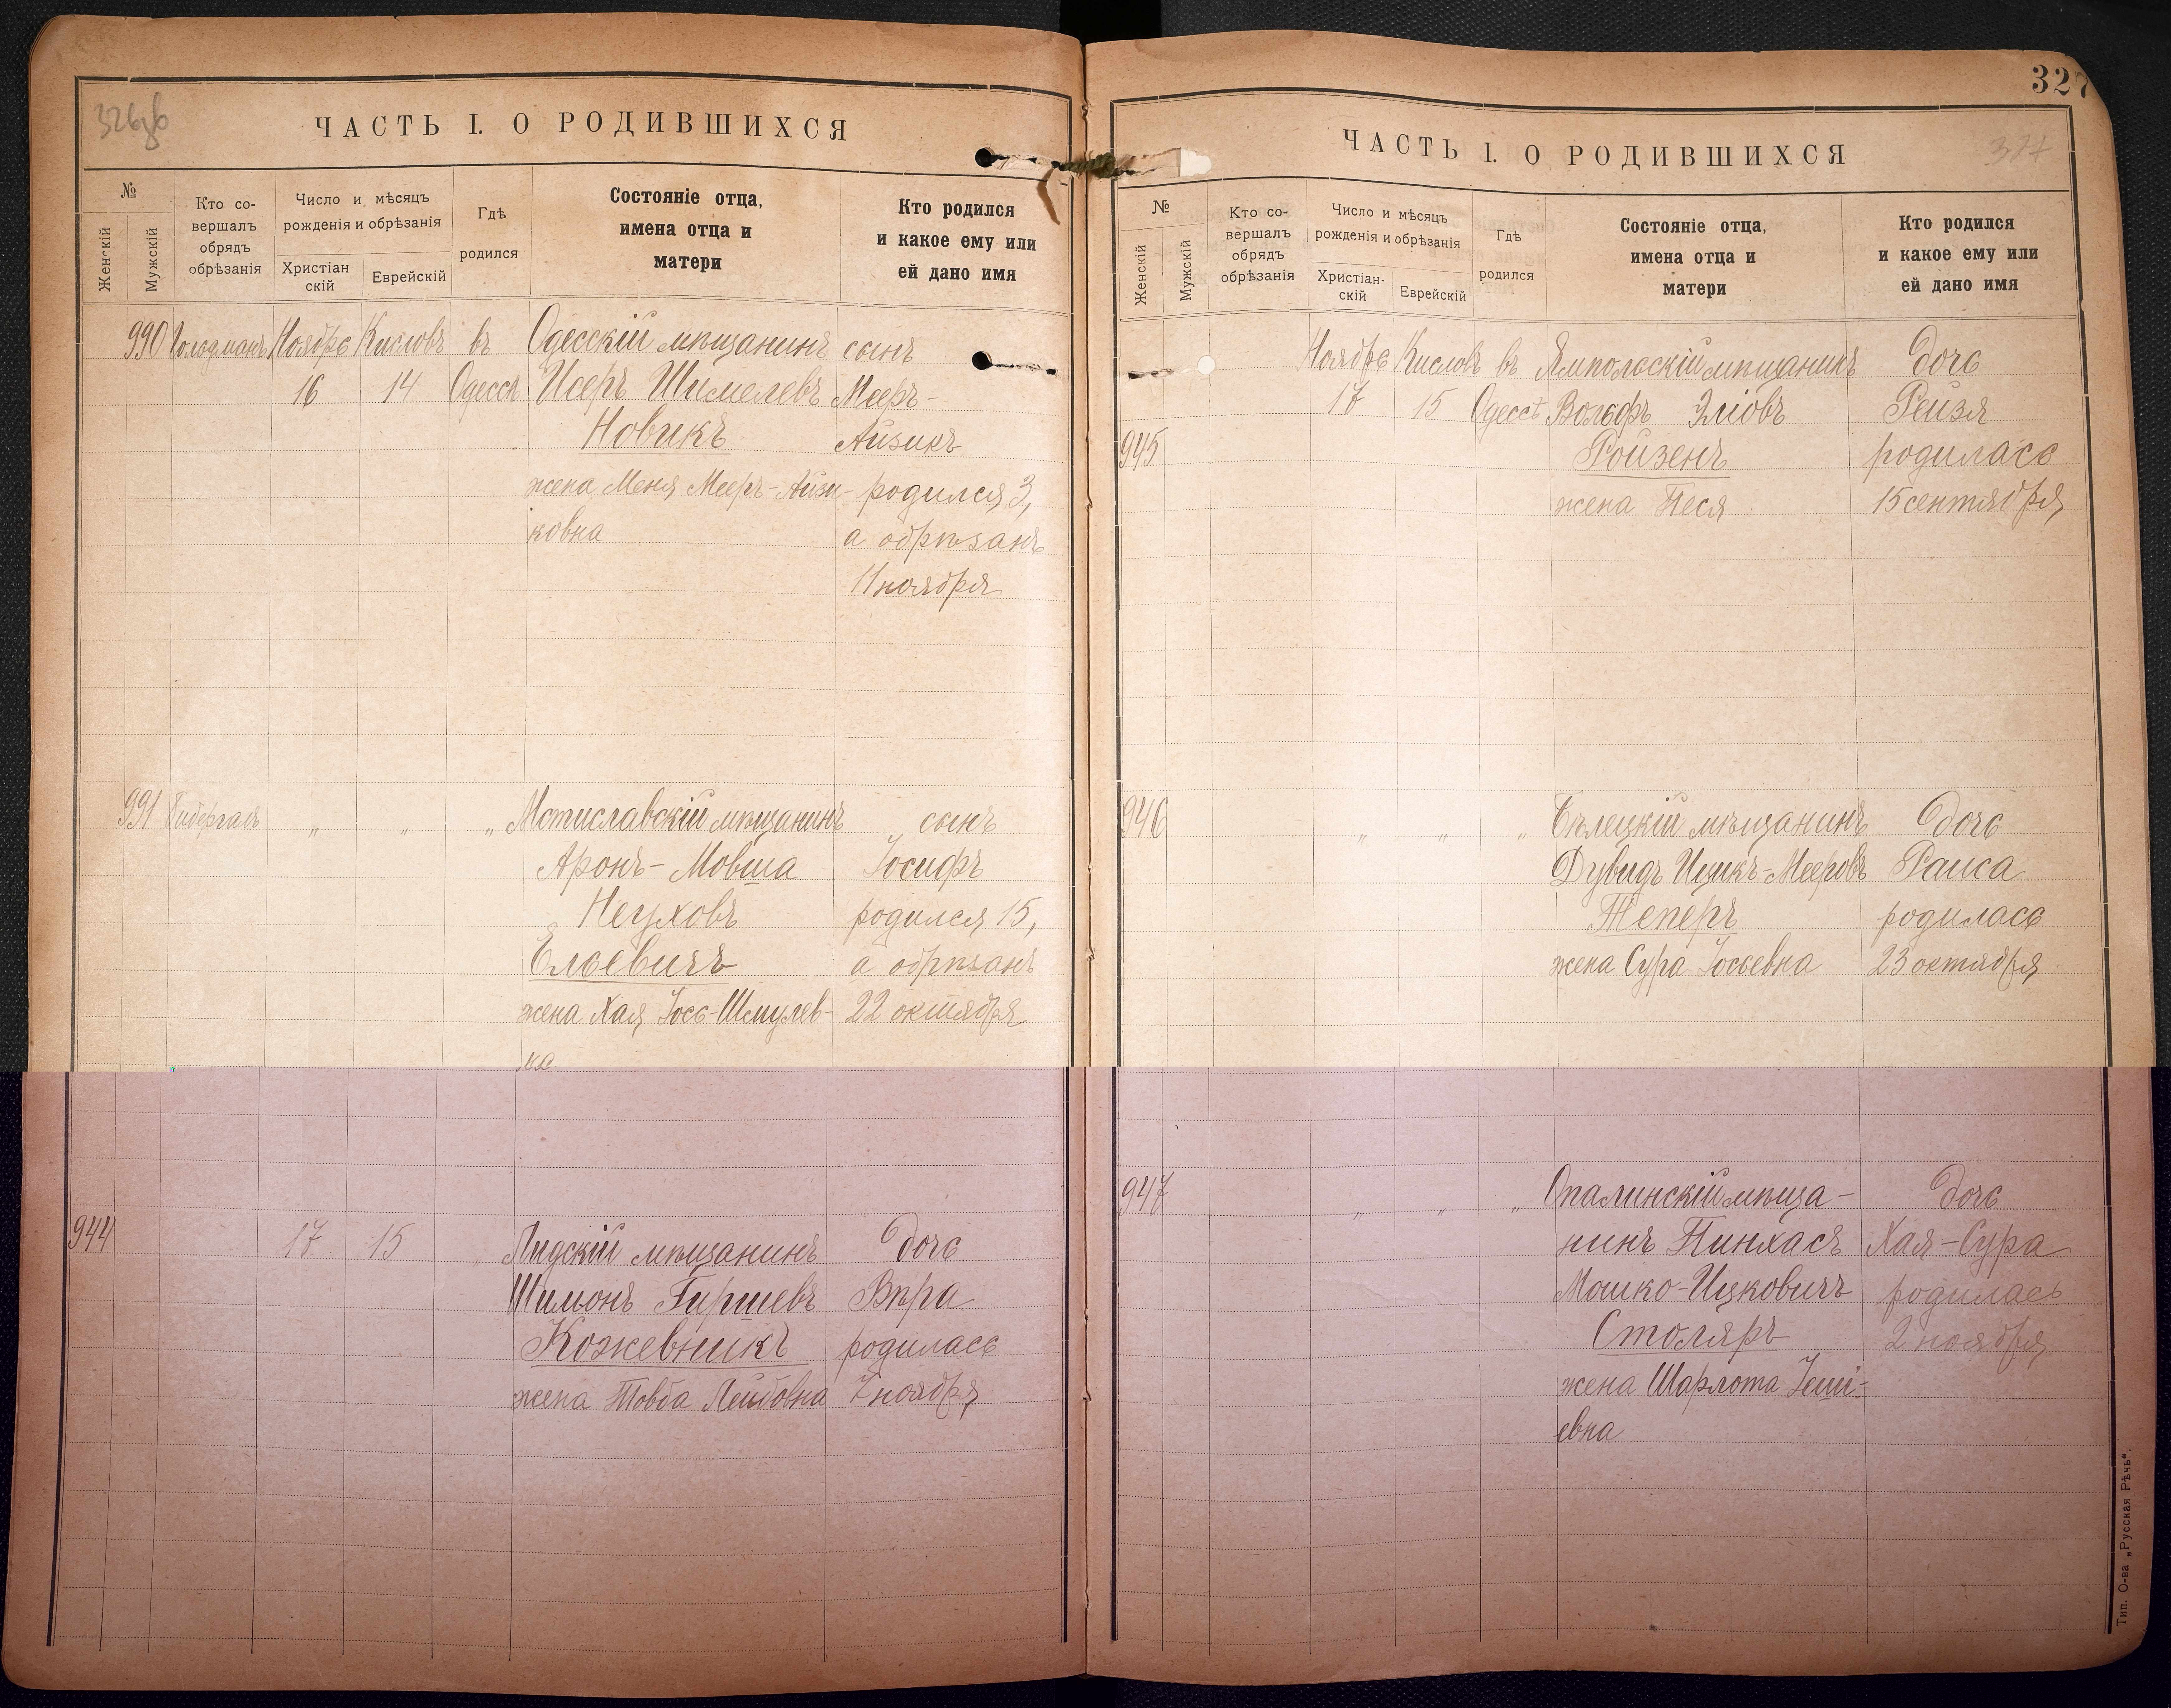 326об
ЧАСТЬ I. О РОДИВШИХСЯ
№
Женскій
Мужскій
Кто со-
вершалъ
обрядъ
обрѣзанія
Число и мѣсяцъ
рожденія и обрѣзанія
Христіан
скій
Еврейскій
Гдѣ
родился
Состояніе отца,
имена отца и
матери
Кто родился
и какое ему или
ей дано имя
990 Гольдманъ Ноябрь Кислевъ въ Одесскій мѣщанинъ сынъ
16 14 Одессѣ Исеръ Шимелевъ Мееръ-
Новикъ Айзикъ
жена Меня Мееръ-Айзи- родился 3,
ковна а обрѣзанъ
11 ноября
991 „ „ „ Мстиславскій мѣщанинъ „ сынъ
Аронъ-Мовша Іосифъ
Неуховъ родился 15,
Ельевичъ а обрѣзанъ
жена Хая Іось-Шмулев- 22 октября
на
944 17 15 „ Лидскій мѣщанинъ дочь
Шимонъ Гиршевъ Вѣра
Кожевникъ родилась
жена Товба Лейбовна 7 ноября
327
327
ЧАСТЬ I. О РОДИВШИХСЯ
№
Женскій
Мужскій
Кто со-
вершалъ
обрядъ
обрѣзанія
Число и мѣсяцъ
рожденія и обрѣзанія
Христіан-
скій
Еврейскій
Гдѣ
родился
Состояніе отца,
имена отца и
матери
Кто родился
и какое ему или
ей дано имя
Ноябрь Кислевъ въ Ямпольскій мѣщанинъ дочь
17 15 Одессѣ Вольфъ Эліовъ Рейзя
945 Ройзенъ родилась
жена Песя 15 сентября
946 „ „ „ Бѣлецкій мѣщанинъ дочь
Дувидъ Ицикъ-Мееровъ Раиса
Теперъ родилась
жена Сура Іосьевна 23 октября
947 „ „ „ Опалинскій мѣща- дочь
нинъ Пинхасъ Хая-Сура
Мошко-Ицковичъ родилась
Столяръ 2 ноября
жена Шарлота
евна
Тип. О-ва „Русская Рѣчь“.